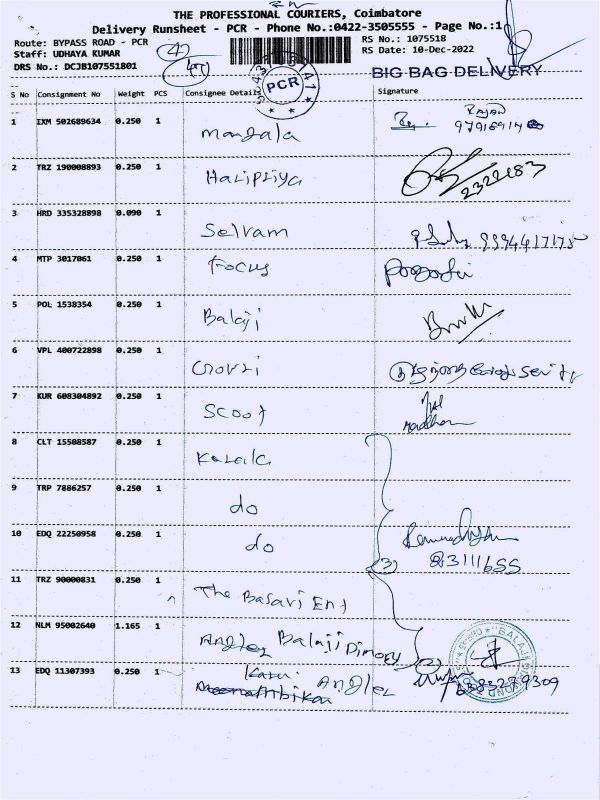 THE PROFESSIONAL COURIERS, Coimbatore
Delivery Runsheet - PCR - Phone No.:0422-3505555 - Page No.:1
Route: BYPASS ROAD - PCR
RS No.: 1075518
Staff: UDHAYA KUMAR
RS Date: 10-Dec-2022
DRS No.: DCJB107551801
PCR
BIG BAG DELIVERY
S No Consignment No Weight PCS Consignee Details Signature
1 IXM 502689634 0.250 1 Mangala
RAJAN
2 TRZ 190008893 0.250 1 Haripriya 2322483
3 HRD 335328898 0.090 1 Selvam
4 MTP 3017061 0.250 1 Focus
5 POL 1538354 0.250 1 Balaji
6 VPL 400722898 0.250 1 Gowri
7 KUR 608304892 0.250 1 Scoot
8 CLT 15508587 0.250 1
9 TRP 7886257 0.250 1 do
10 EDQ 22250958 0.250 1 do
(3) 83111655
11 TRZ 90000831 0.250 1 The Basari Ent
12 NLM 95002640 1.165 1 Angler Balaji
13 EDQ 11307393 0.250 1 Angler 6383279309